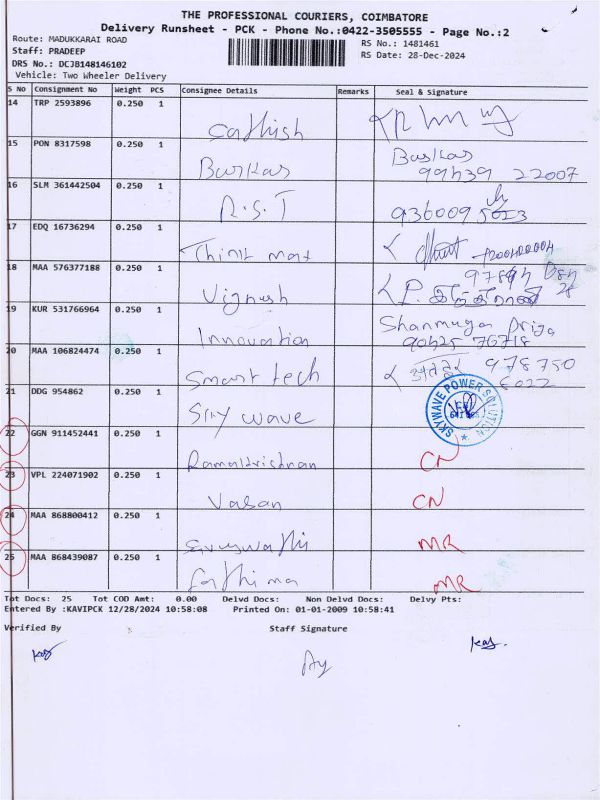 THE PROFESSIONAL COURIERS, COIMBATORE
Delivery Runsheet - PCK - Phone No.:0422-3505555 - Page No.:2
Route: MADUKKARAI ROAD
RS No.: 1481461
Staff: PRADEEP
RS Date: 28-Dec-2024
DRS No.: DCJB148146102
Vehicle: Two Wheeler Delivery
S No Consignment No Weight PCS Consignee Details Remarks Seal & Signature
14 TRP 2593896 0.250 1 Sathish
15 PON 8317598 0.250 1 Baskar Baskar
99439 22007
16 SLM 361442504 0.250 1 R.S.T
17 EDQ 16736294 0.250 1 Think mat
18 MAA 576377188 0.250 1 Vignesh
19 KUR 531766964 0.250 1 Innovation Shanmuga Priya
90425 76718
20 MAA 106824474 0.250 1 Smart tech 978750
6022
21 DDG 954862 0.250 1 Sky wave SKYWAVE POWER SOLUTION
22 GGN 911452441 0.250 1 Ramakrishnan CN
23 VPL 224071902 0.250 1 Vasan CN
24 MAA 868800412 0.250 1 MR
25 MAA 868439087 0.250 1 Fathima MR
Tot Docs: 25 Tot COD Amt: 0.00 Delvd Docs: Non Delvd Docs: Delvy Pts:
Entered By :KAVIPCK 12/28/2024 10:58:08 Printed On: 01-01-2009 10:58:41
Verified By Staff Signature